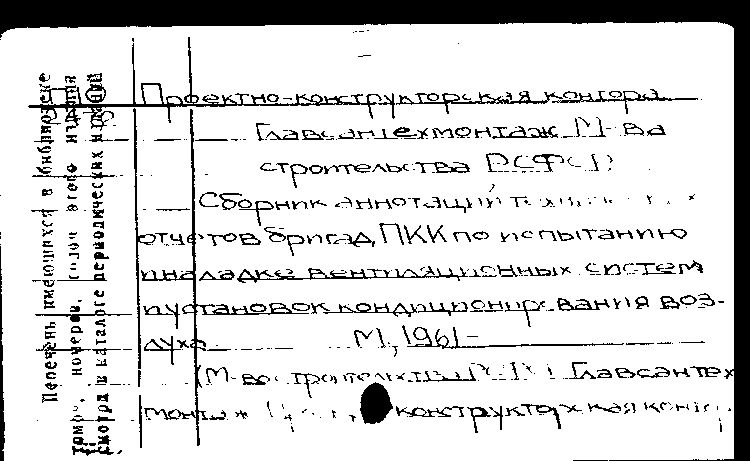 Перечень имеющихся в библиотеке
томов, номеров, годов этого издания
смотри в каталоге периодических изданий
Проектно-конструкторская контора
Главсантехмонтаж М-ва
строительства РСФСР
Сборник аннотаций
отчетов бригад ПКК по испытанию
и наладке вентиляционных систем
и установок кондиционирования воз-
духа М., 1961-
(М-во строительства РСФСР Главсантех
монтаж конструкторская контор